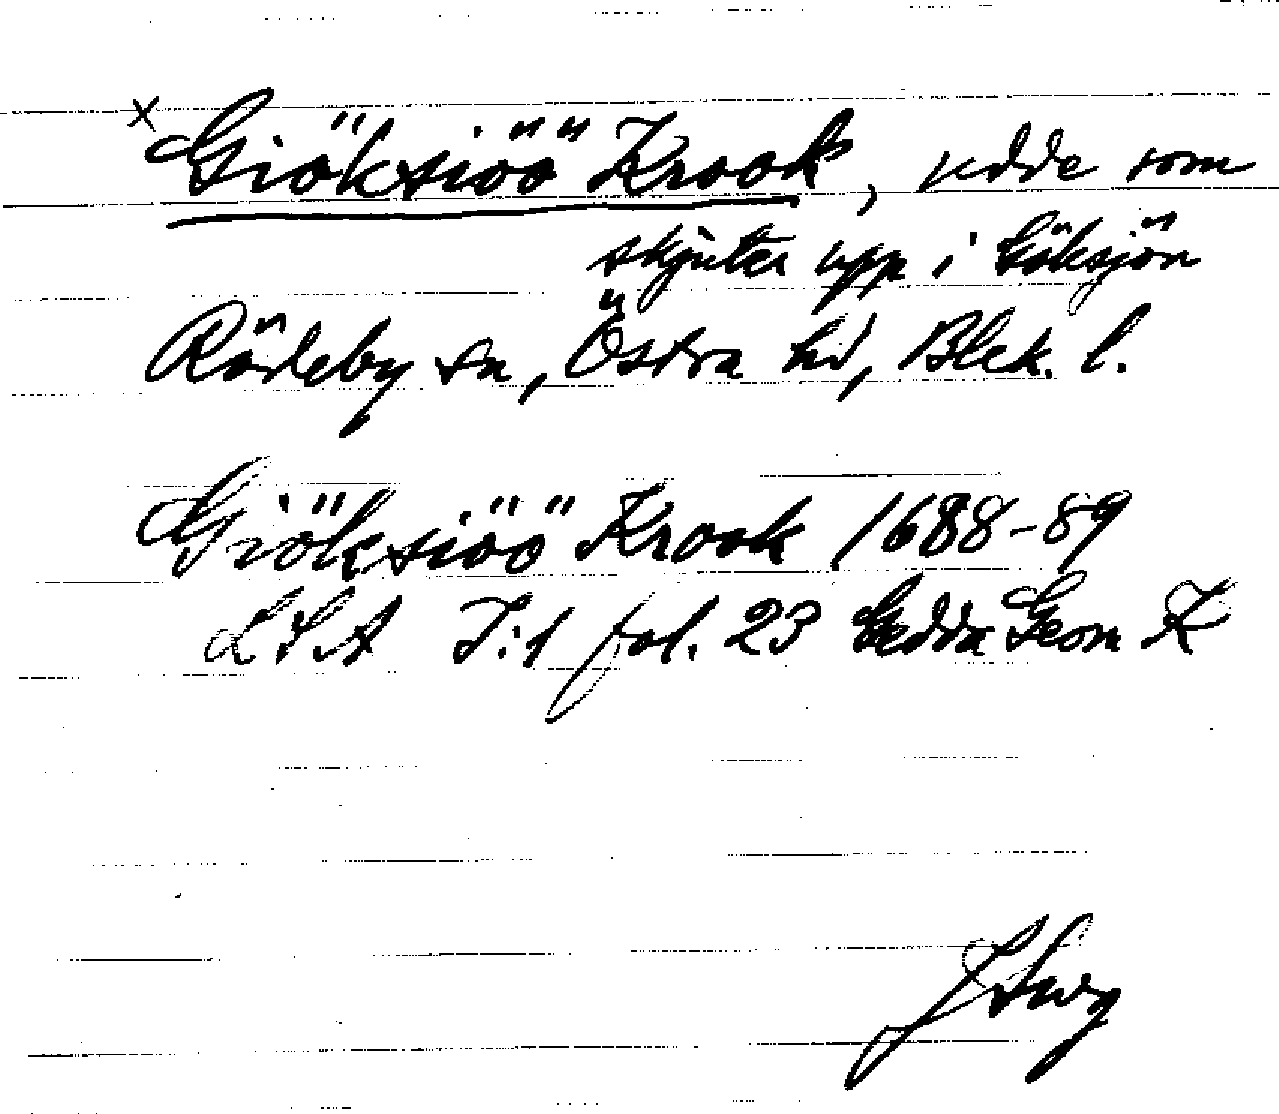 x Giöksiöö Krook, udde som
skjuter upp i Göksjön
Rödeby sn, Östra hd, Blek. l.
Giöksiöö Krook 1688-89
LSA I:1 fol. 23 Gedda Geom K